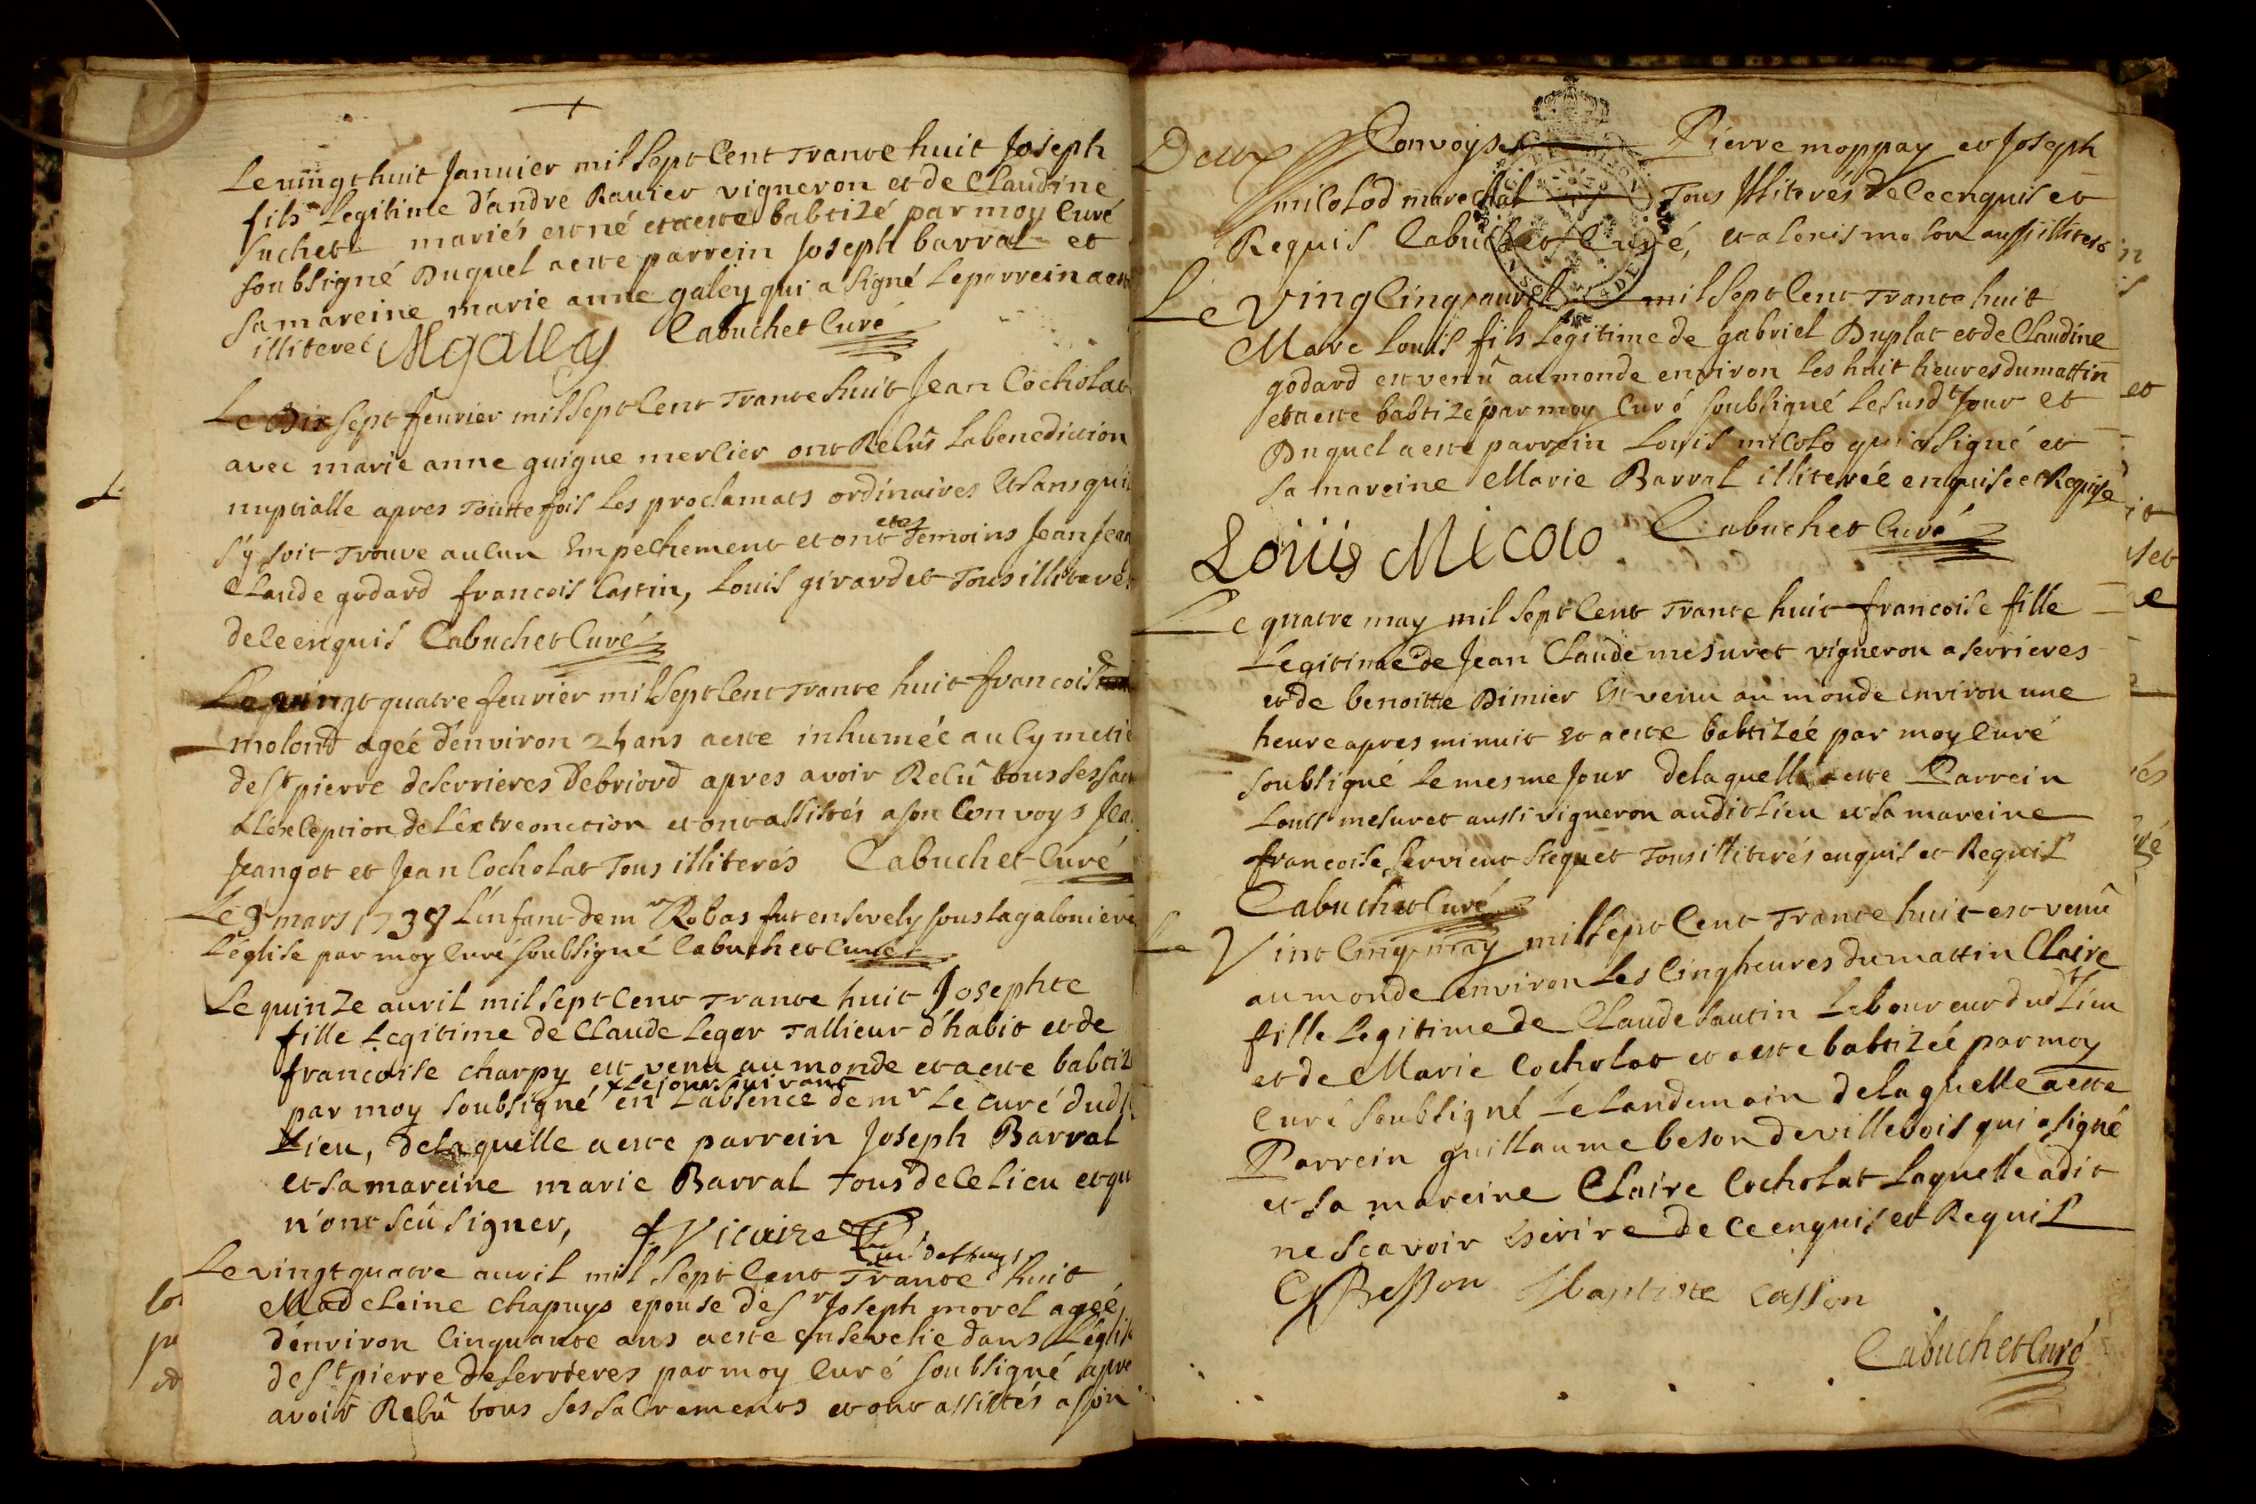 Le vingt huit Janvier mil sept cent trante huit Joseph
fils Legitime d'andre Ravier vigneron et de Claudine
suchet mariés est né et a este babtizé par moy curé
soubsigné Duquel a este parrein Joseph barral et
sa mareine marie anne galey qui a signé Le parrein a esté
illiteret MGaley Cabuchet Curé
Le Dix sept fevrier mil sept cent trante huit Jean Cocholat
avec marie anne guigue mercier ont Recus La benediction
nuptialle apres toutte fois Les proclamats ordinaires et sans qui
s'y soit trouve aucun Empechement et ont etes temoins Jean Jean
Claude godard francois Castin, Louis girardet tous illiterés
de ce enquis Cabuchet Curé
Le vingt quatre fevrier mil sept cent trante huit francoise
molond agée d'environ 25 ans a este inhumée au Cymetie
de St pierre de serrieres De briord apres avoir Recû tous ses sac
a L'exception de L'extreonction et ont assistés a son Convoys Jea
Jeangot et Jean Cocholat tous illiterés Cabuchet Curé
Le 9 mars 1738 L'infant de mr Robas fut ensevely sous la galoniere
L'église par moy Cure soubsigné Cabuchet Curé
Le quinze avril mil sept cent trante huit Josephte
fille Legitime de Claude Leger tallieur d'habit et de
francoise charpy est venu au monde et a este babtiz
x Le jour suivant
par moy soubsigné en L'absence de mr Le curé dud
Lieu, de laquelle a este parrein Joseph Barral
et sa mareine marie Barral tous de ce Lieu et qu
n'ont sceû signer, f. Vicaire
Le vingt quatre avril mil sept cent trante huit
Madeleine chapuys epouse de Sr Joseph morel agée
d'environ Cinquante ans a este ensevelie dans L'églis
de St pierre de serrieres par moy Curé soubsigné apre
avoir Recû tous ses sacrements et ont assistés a son
Deux Convoys Pierre moppay et Joseph
micolod marechal tous Illiterés de ce enquis et
Requis Cabuchet Curé, et a Louis molon aussi illiteré
Le Vingt Cinq avril mil sept cent trante huit
Marc Louis fils Legitime de gabriel Duplat et de Claudine
godard est venû au monde environ Les huit heures du mattin
et a este babtizé par moy Curé soubsigné Le susdt Jour et
Duquel a este parrein Louis micolo qui a signé et
sa mareine Marie Barral illiterée enquise et Requise
Loüis Micolo Cabuchet Curé
Le quatre may mil sept cent trante huit francoise fille
Legitime de Jean Claude mesuret vigneron a serrieres
et de benoitte Dimier Est venu au monde environ une
heure apres minuit et a este babtizée par moy Curé
soubsigné Le mesme Jour de laquelle a este Parrein
Louis mesuret aussi vigneron audit Lieu et sa mareine
francoise servient tous illiterés enquis et Requis
Cabuchet Curé
Le Vint Cinq may mil sept cent trante huit est venû
au monde environ Les Cinq heures du mattin Claire
fille Legitime de Claude sautin Laboureur dudt Lieu
et de Marie Cocholat et a este babtizée par moy
Curé soubsigné Le Landemain de laquelle a este
Parrein guillaume beson de villebois qui a signé
et sa mareine Claire Cocholat Laquelle a dit
ne scavoir Escrire de ce enquis et Requis
G Besson Jbaptiste Casson
Cabuchet Curé